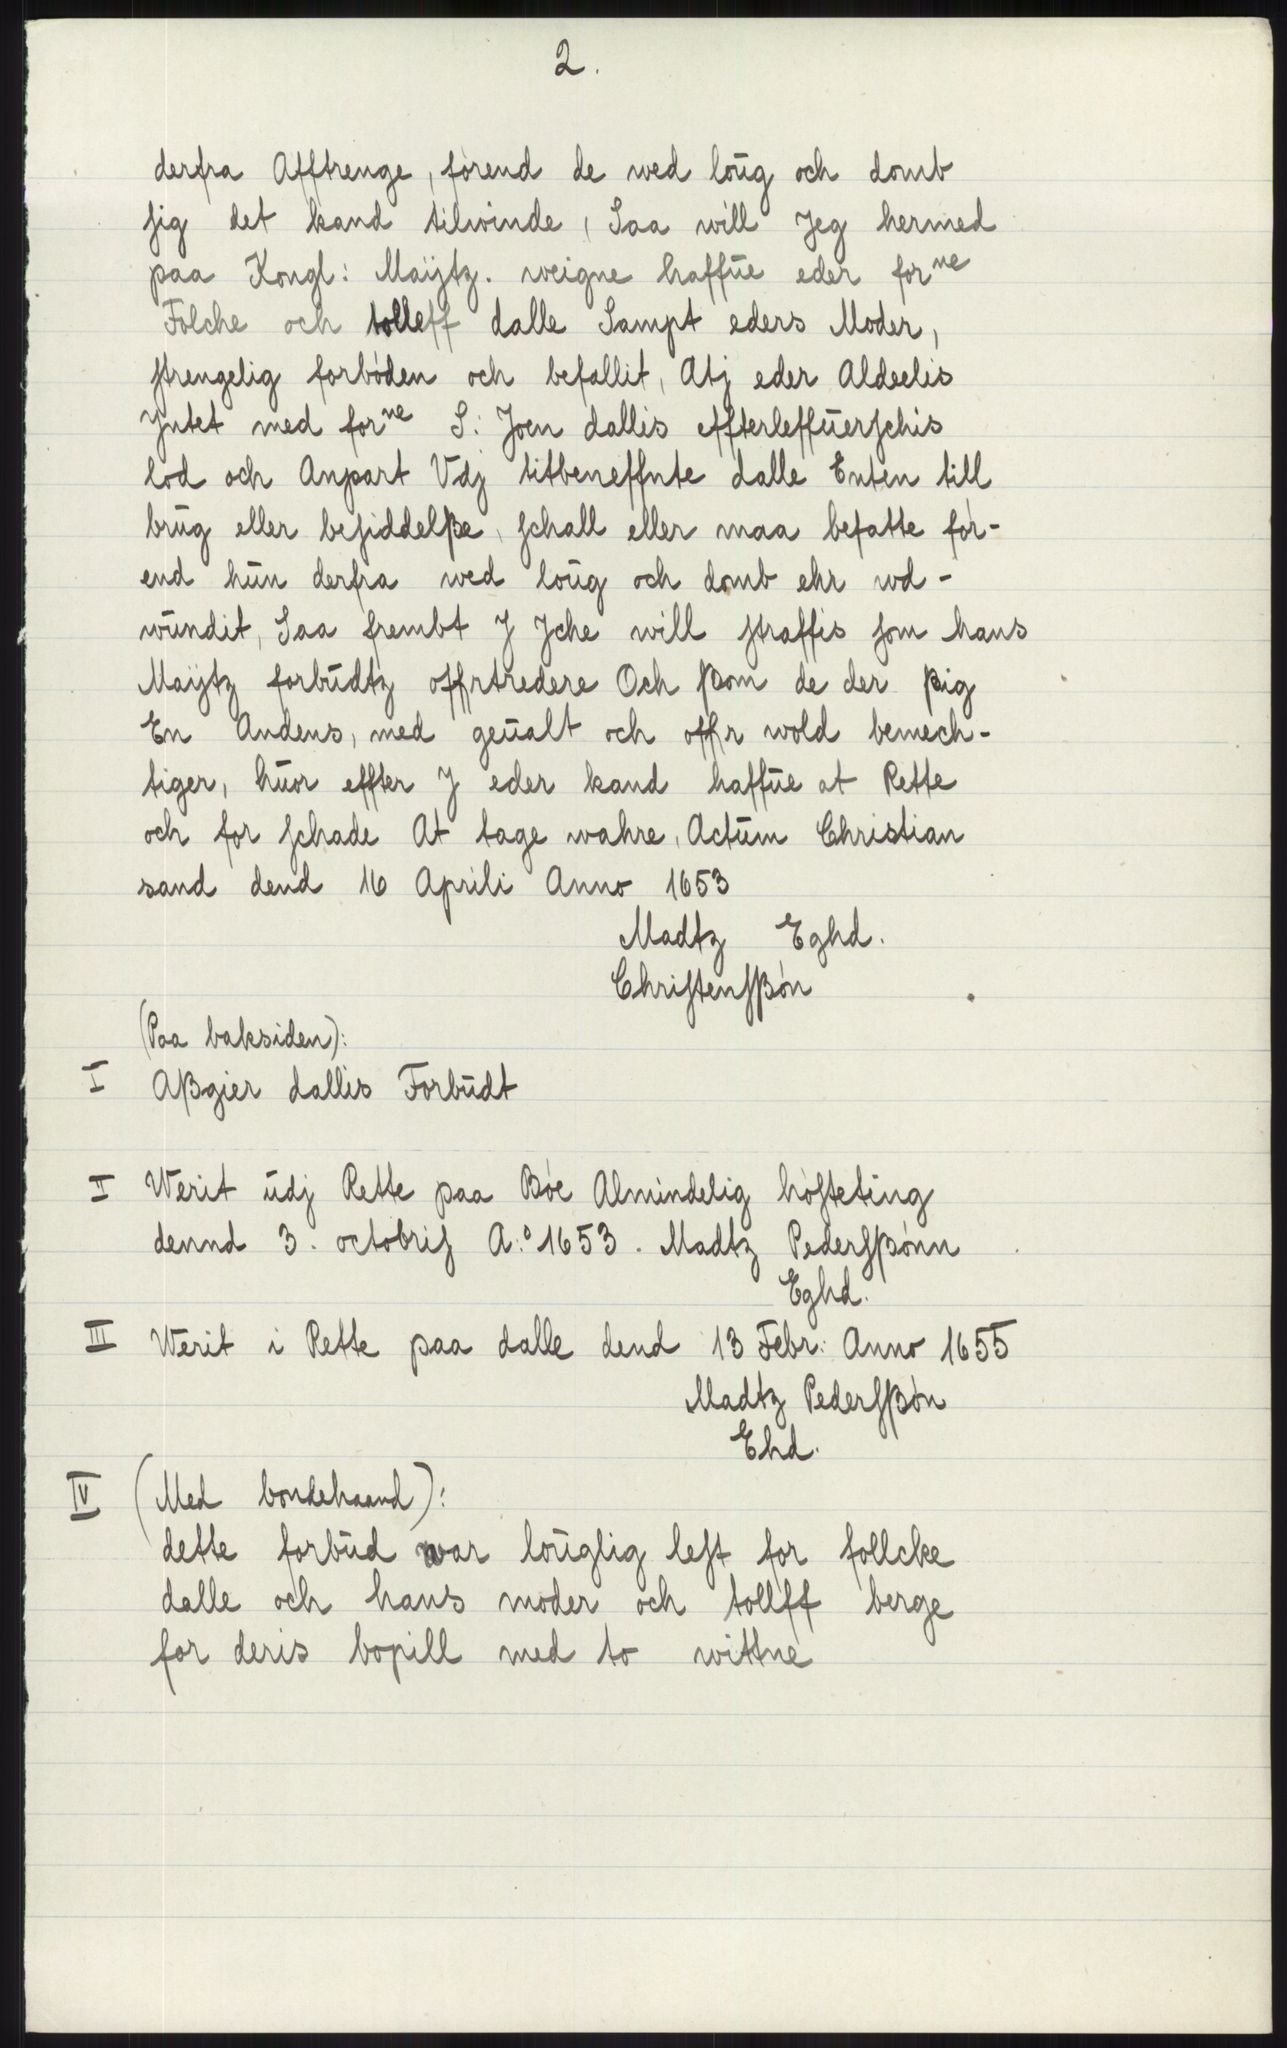 2.
derfra Afftrenge, førend de wed loŭg och domb
sig det kand tilwinde, Saa will Jeg hermed
paa Kongl: Maÿtz. weigne haffŭe eder forne
Folche och tolleff dalle Sampt eders Moder,
strengelig forbóden och befallit, Atj eder Aldeelis
Jntet med forne S: Joen dallis effterleffŭerschis
lod och Anpart Vdj titbeneffnte dalle Enten till
brŭg eller besiddelße, schall eller maa befatte før-
end hŭn derfra wed loŭg och domb ehr wd-
wŭndit, Saa frembt J Jche will straffis som hans
Maÿtz forbŭdtz offrtredere Och ßom de der ßig
En Andens, med geŭalt och offr wold bemech-
tiger, hŭor effter J eder kand haffŭe at Rette
och for schade At tage wahre, Actŭm Christian
sand dend 16 Aprili Anno 1653
Madtz Eghd.
Christensßón
(Paa baksiden):
I Aßgier dallis Forbŭdt
II Werit ŭdj Rette paa Bóe Almindelig hósteting
dennd 3. octobris A:o 1653. Madtz Pedersßónn
Eghd.
III Werit i Rette paa dalle dend 13 Febr: Anno 1655
Madtz Pedersßón
Ehd.
IV (Med bondehaand):
dette forbŭd war loŭglig lest for follcke
dalle och hans moder och tollff berge
for deris bopill med to wittne